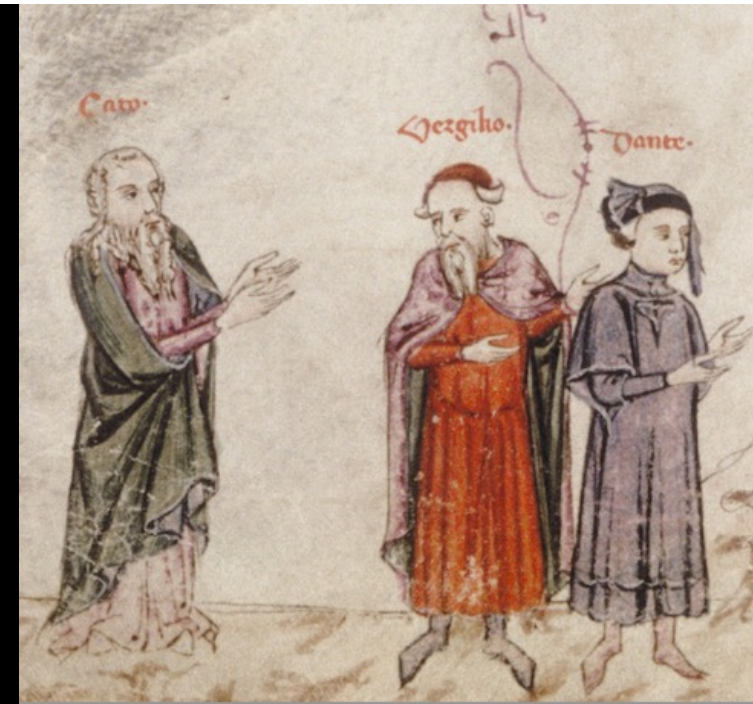 Cato.
Vergilio.
Dante.